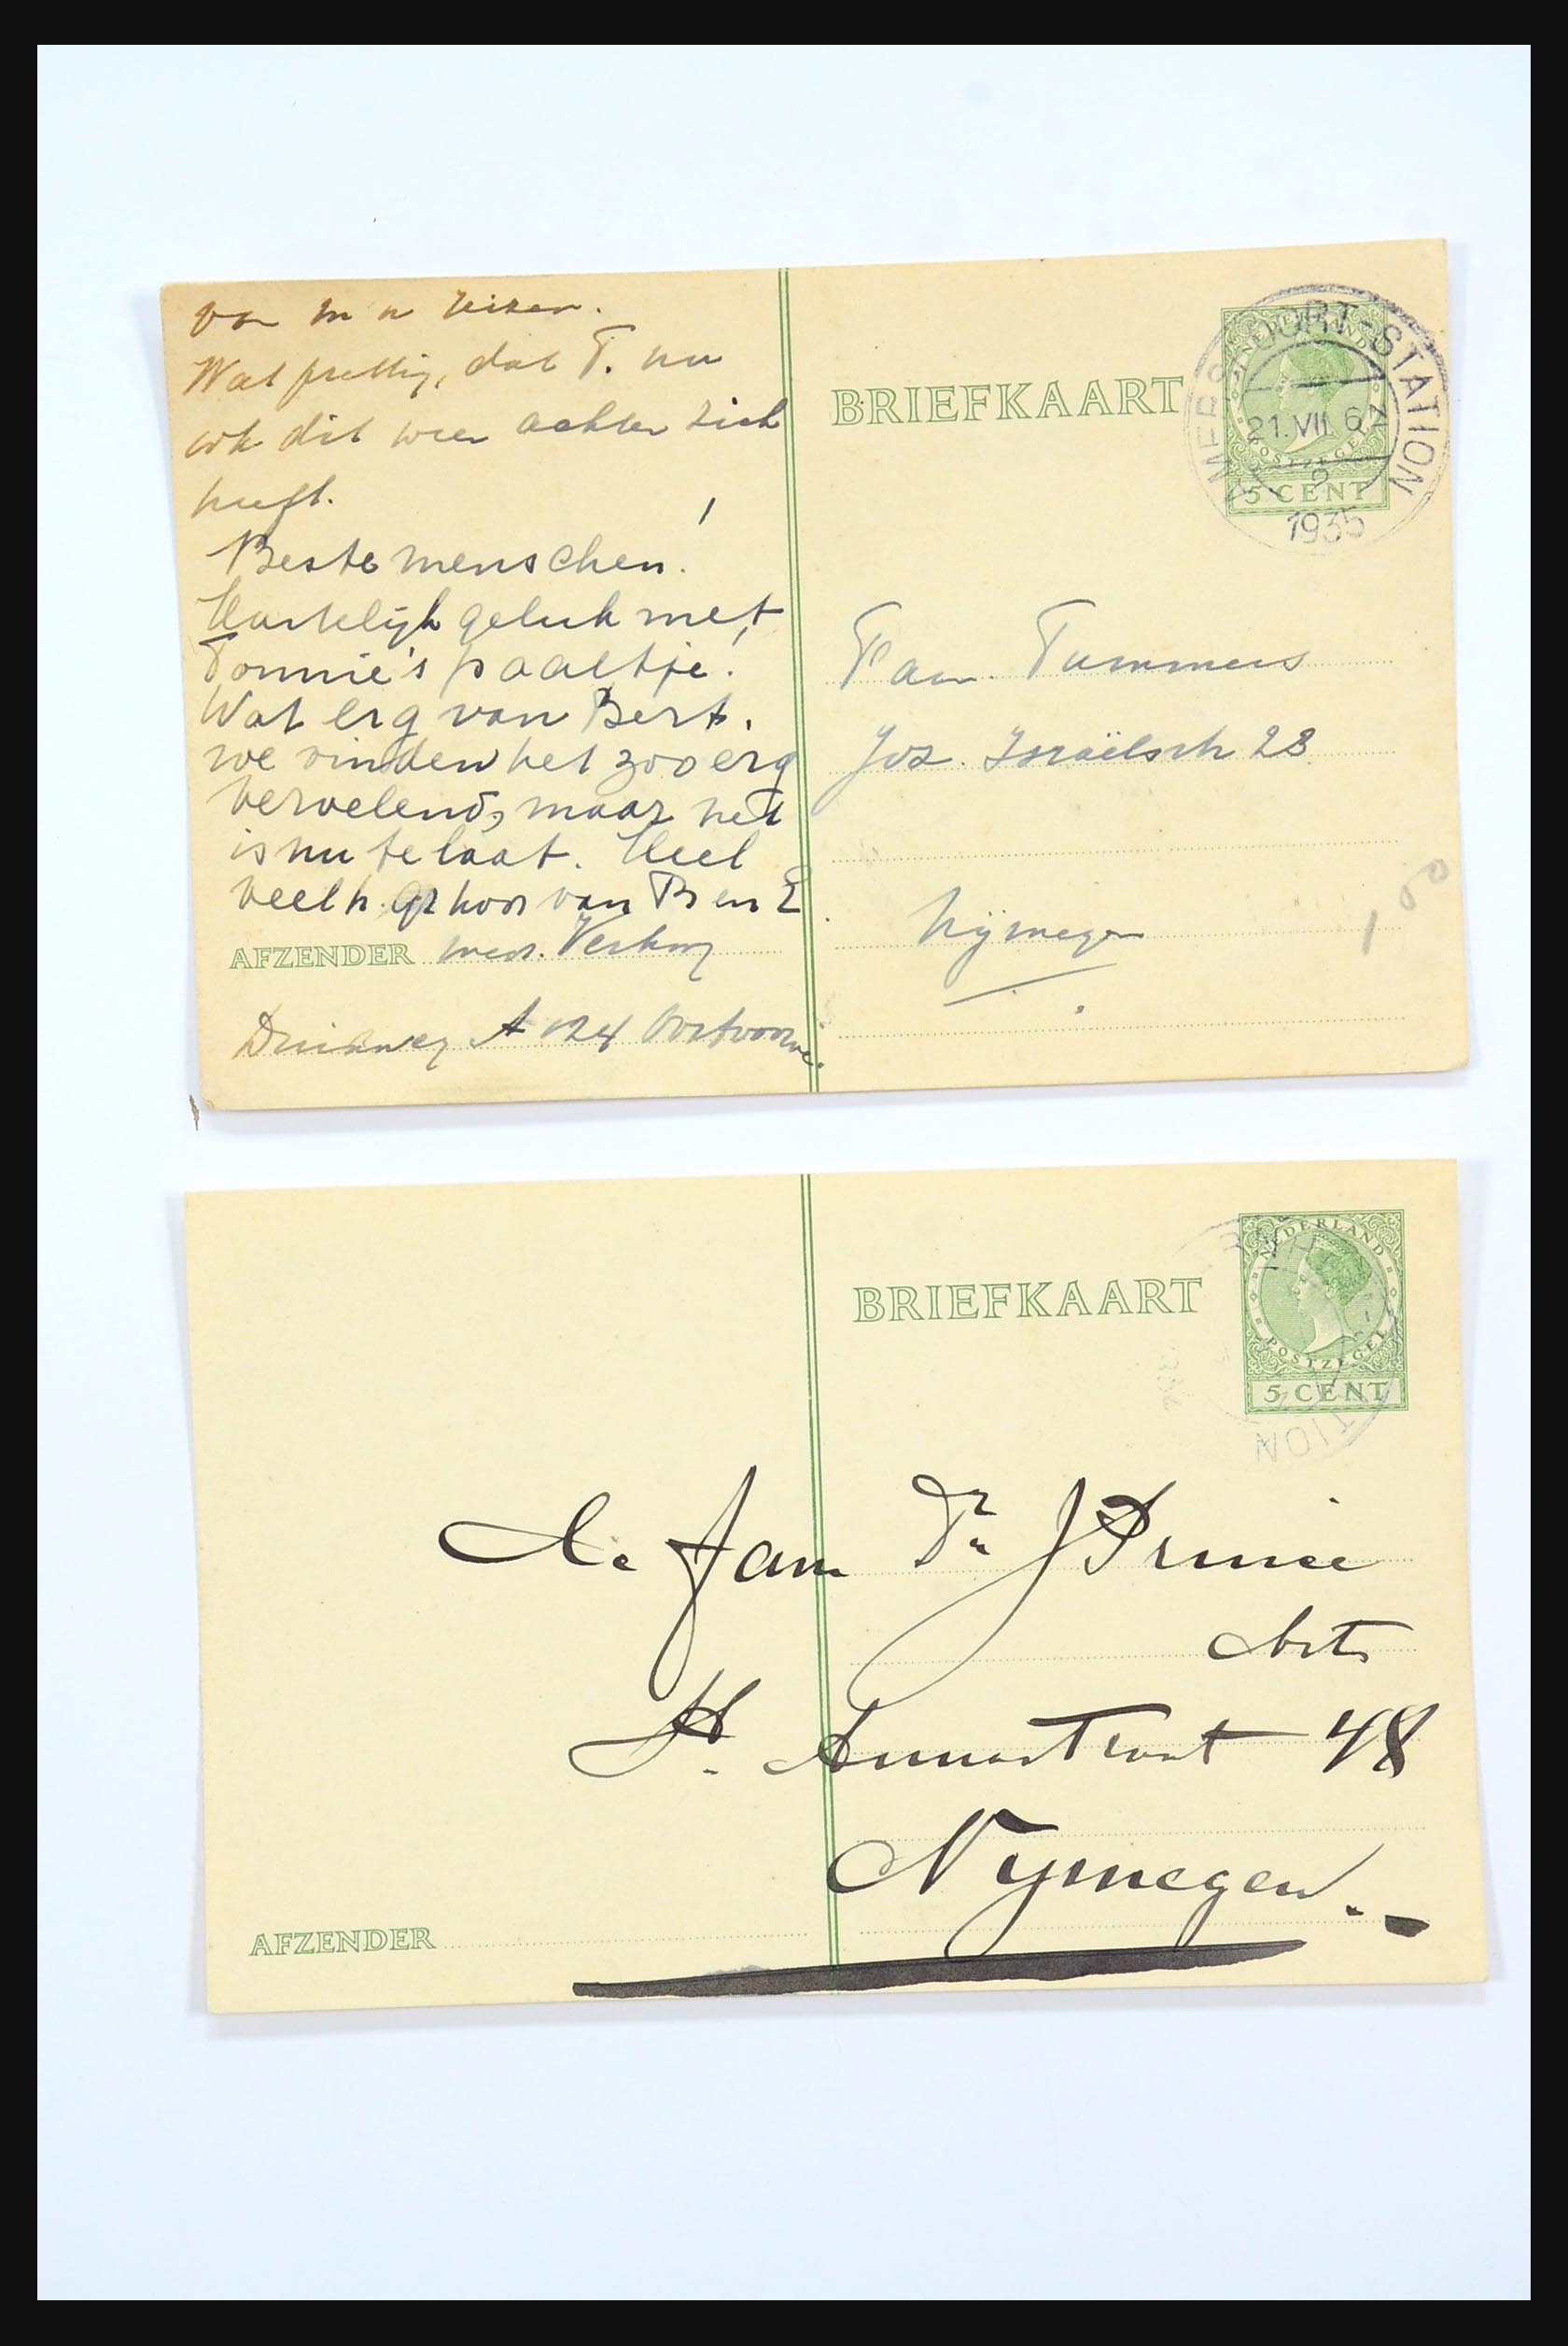 Wat prettig, dat T. nu
ook dit weer achter zich
heeft.
Beste menschen!
Hartelijk geluk met
Tonnie's paaltje!
Wat erg van Bert.
we vinden het zoo erg
vervelend, maar het
is nu te laat. Heel
veel h. gr hoor van B en E.
AFZENDER
A 124 Oostvoorne.
BRIEFKAART
NEDERLAND
POSTZEGEL
5 CENT
AMERSFOORT-STATION
21.VII 6
1935
Fam. Tummers
Joz. Israëlstr 28
Nijmegen
1,00
BRIEFKAART
NEDERLAND
POSTZEGEL
5 CENT
TION
Fam Dr J Prince
Arts
St. Annastraat 48
Nymegen.
AFZENDER